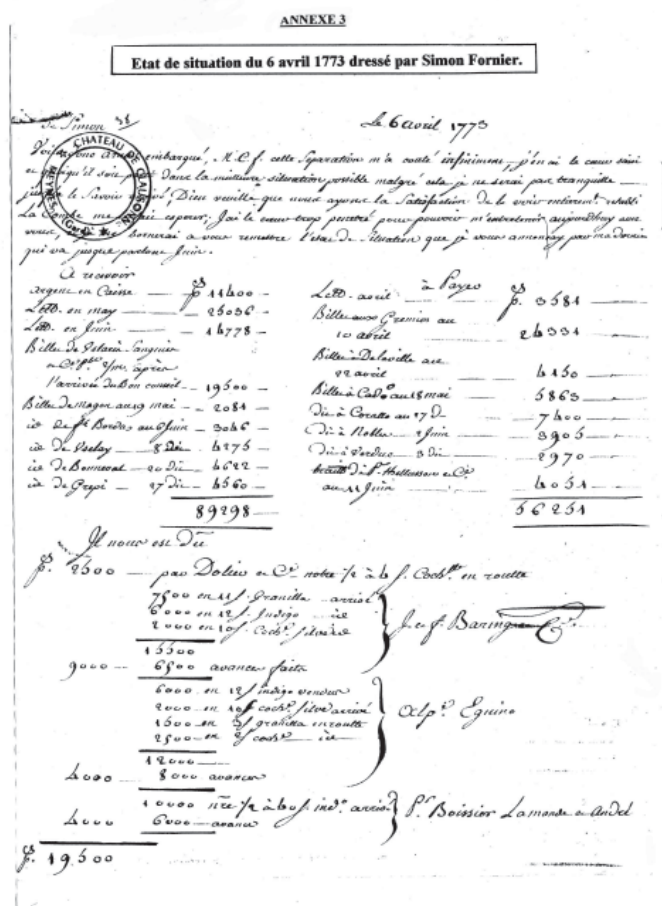 ANNEXE 3
Etat de situation du 6 avril 1773 dressé par Simon Fornier.
de Simon 38
Le 6 avril 1773
CHATEAU DE CLAUSONNE
MEYNES (Gard)
embarqué, M.C.f. cette separation m'a couté infiniment j'en ai le cœur saisi
qu'il soit dans la meilleure situation possible malgré cela je ne serai pas tranquille
le Savoir Dieu veuille que nous ayons la Satisfaction de le voir entierem.t retabli
La Combe me fait esperer, J'ai le cœur trop penetré pour pouvoir m'entretenir aujourdhuy avec
vous, bornerai a vous remettre l'etat de Situation que je vous annonçay par ma derniere
qui va jusque par tout Juin.
A recevoir
argent en Caisse — 11400 —
Lettr. en may — 25036 —
Lettr. en Juin — 16778 —
Billet de
après
l'arrivée du Bon conseil — 19500 —
Billet de magon au 19 mai — 2081 —
id de Bordas au 6 Juin — 3046 —
id de — 8 dit — 4275 —
id de Bonneval — 20 dit — 4622 —
id de Crepi — 27 dit — 4560 —
89298 —
à Payer
Lettr. avril — 3581 —
Billet aux Gremion au
10 avril — 26331 —
Billet à Delaville au
22 avril — 4150 —
Billet à Cado au 18 mai — 5863 —
dit à Coratto au 27 d° — 7400 —
dit à Noble 2 Juin — 3905 —
dit à Verduc 3 dit — 2970 —
au 11 Juin — 4051 —
56251 —
Il nous est Dû
2500 — par Dolieu et C.e notre 1/2 à 6 f. Coch.lle en routte
7500 en 11 f. Granilla arrivé
6000 en 12 f. Indigo id
2000 en 10 f. Coch. silvé id
J. et f. Baring et C.e
15500
9000 — 6500 avance faite
6000 en 12 f indigo vendus
2000 en 10 f coch. silv arrivé
1500 en 3 f granilla en routte
2500 en 2 f coch. id
Alp. Eguino
12000
4000 8000 avance
10000 nre 1/2 à 60 f. ind.o arrivé
4000 6000 avance
P.r Boissier Lamande et André
19500